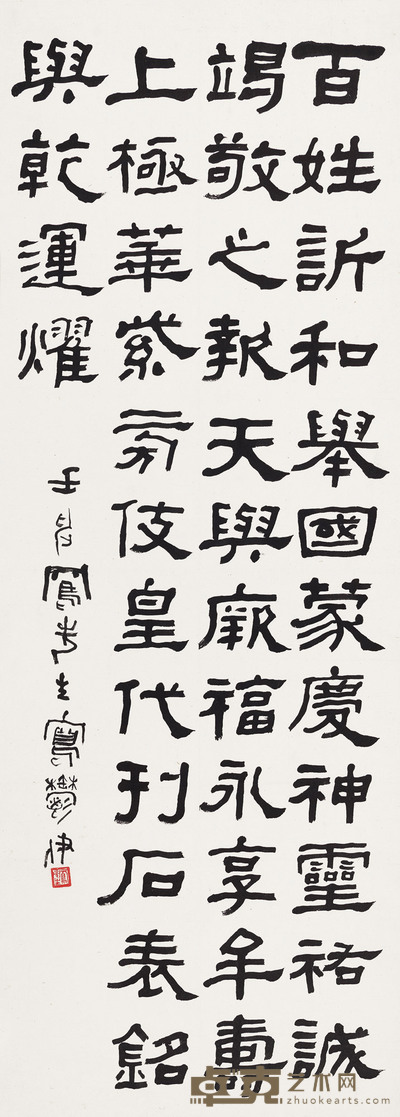 百姓訢和舉國蒙慶神靈祐誠
竭敬之報天與厥福永享牟壽
上極華紫旁伎皇代刊石表銘
與乾運燿
壬
卓克艺术网
zhuokearts.com